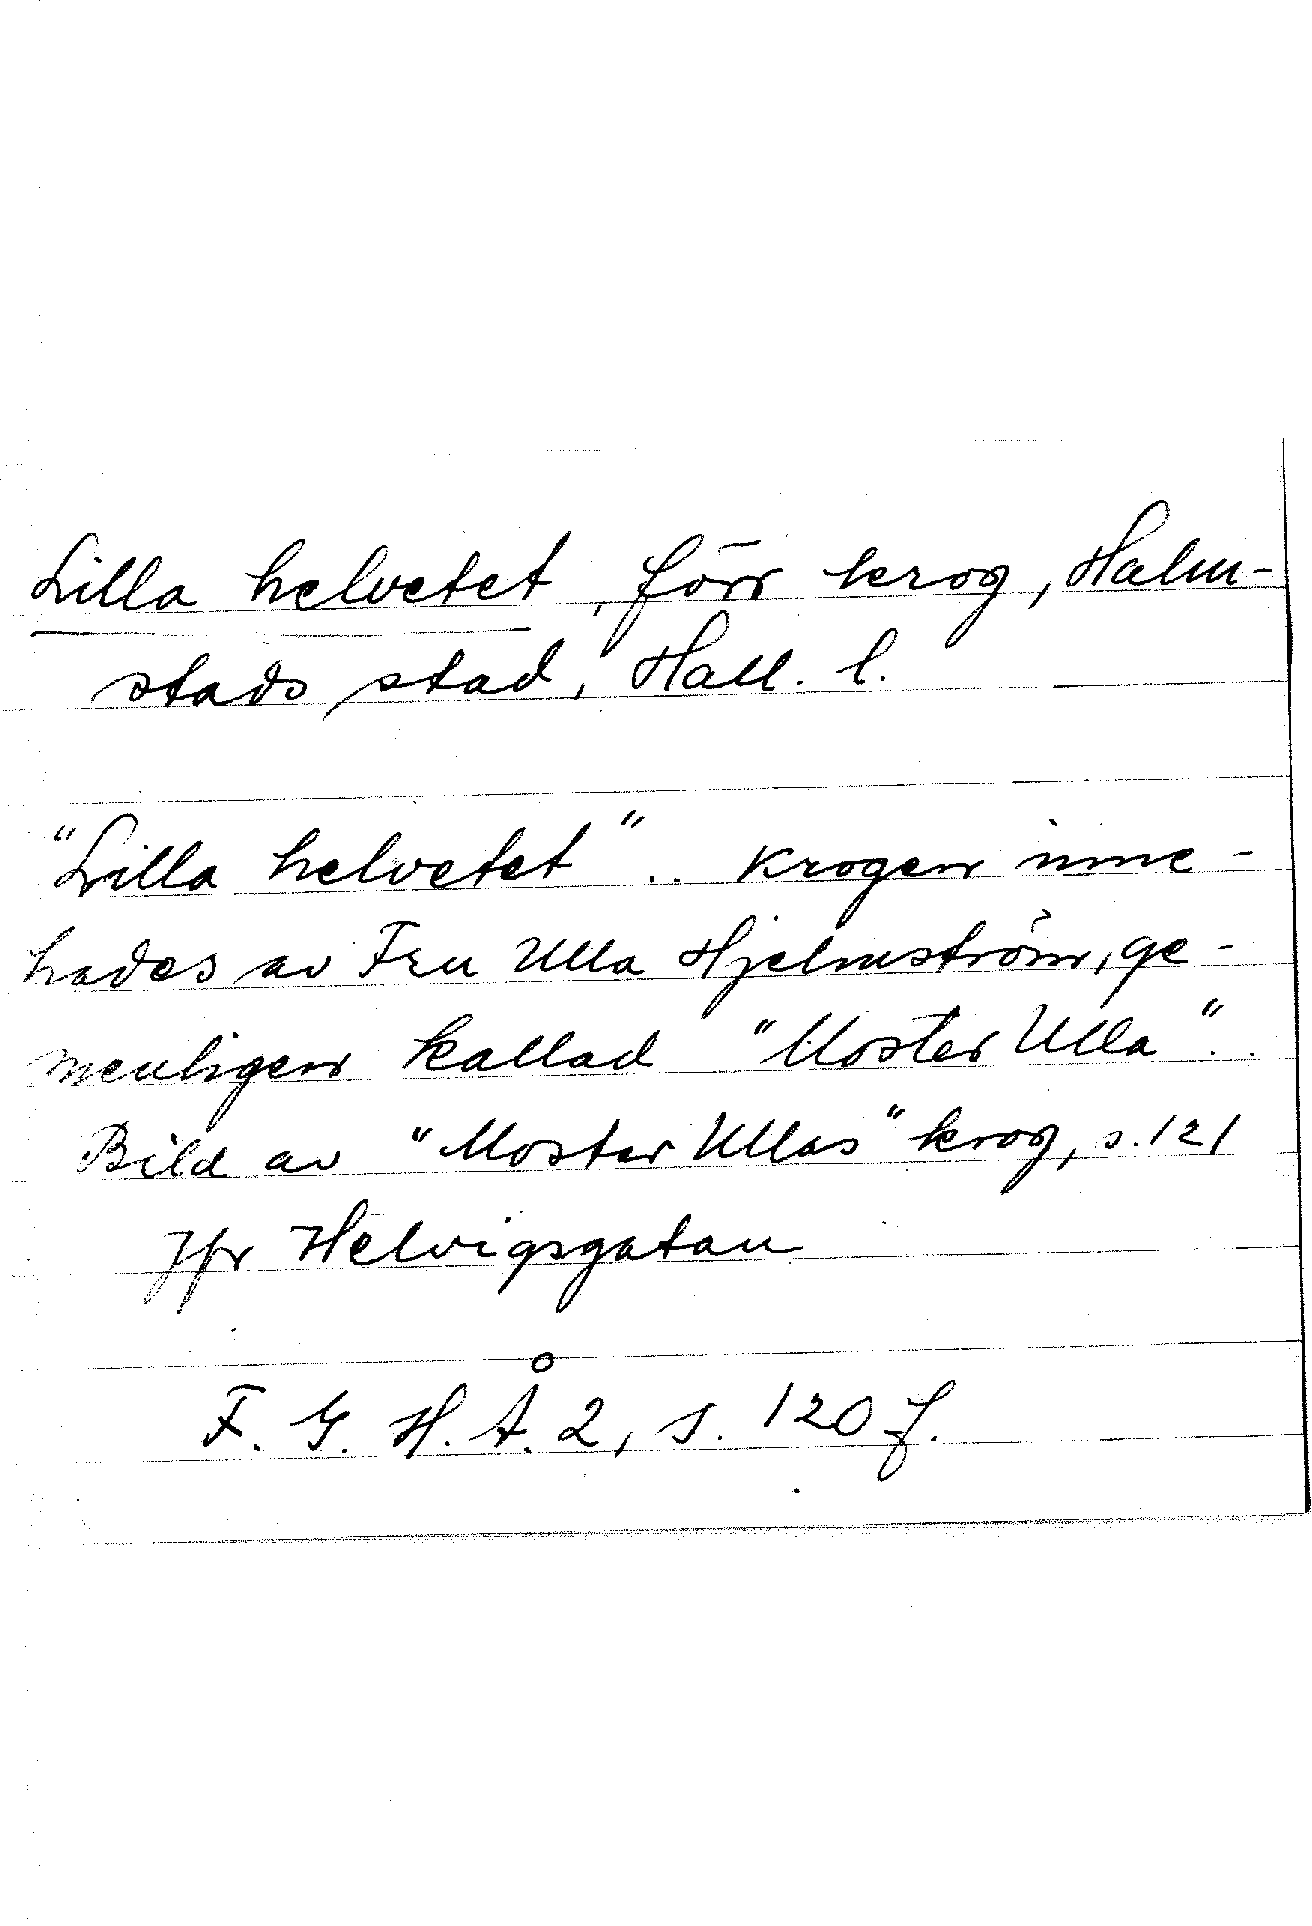 Lilla helvetet, förr krog, Halm-
stads stad, Hall. l.
"Lilla helvetet" .. krogen inne-
hades av Fru Ulla Hjelmström, ge-
menligen kallad "Moster Ulla" ..
Bild av "Moster Ullas" krog, s. 121
Jfr Helvigsgatan
F. G. H. Å. 2, s. 120 f.